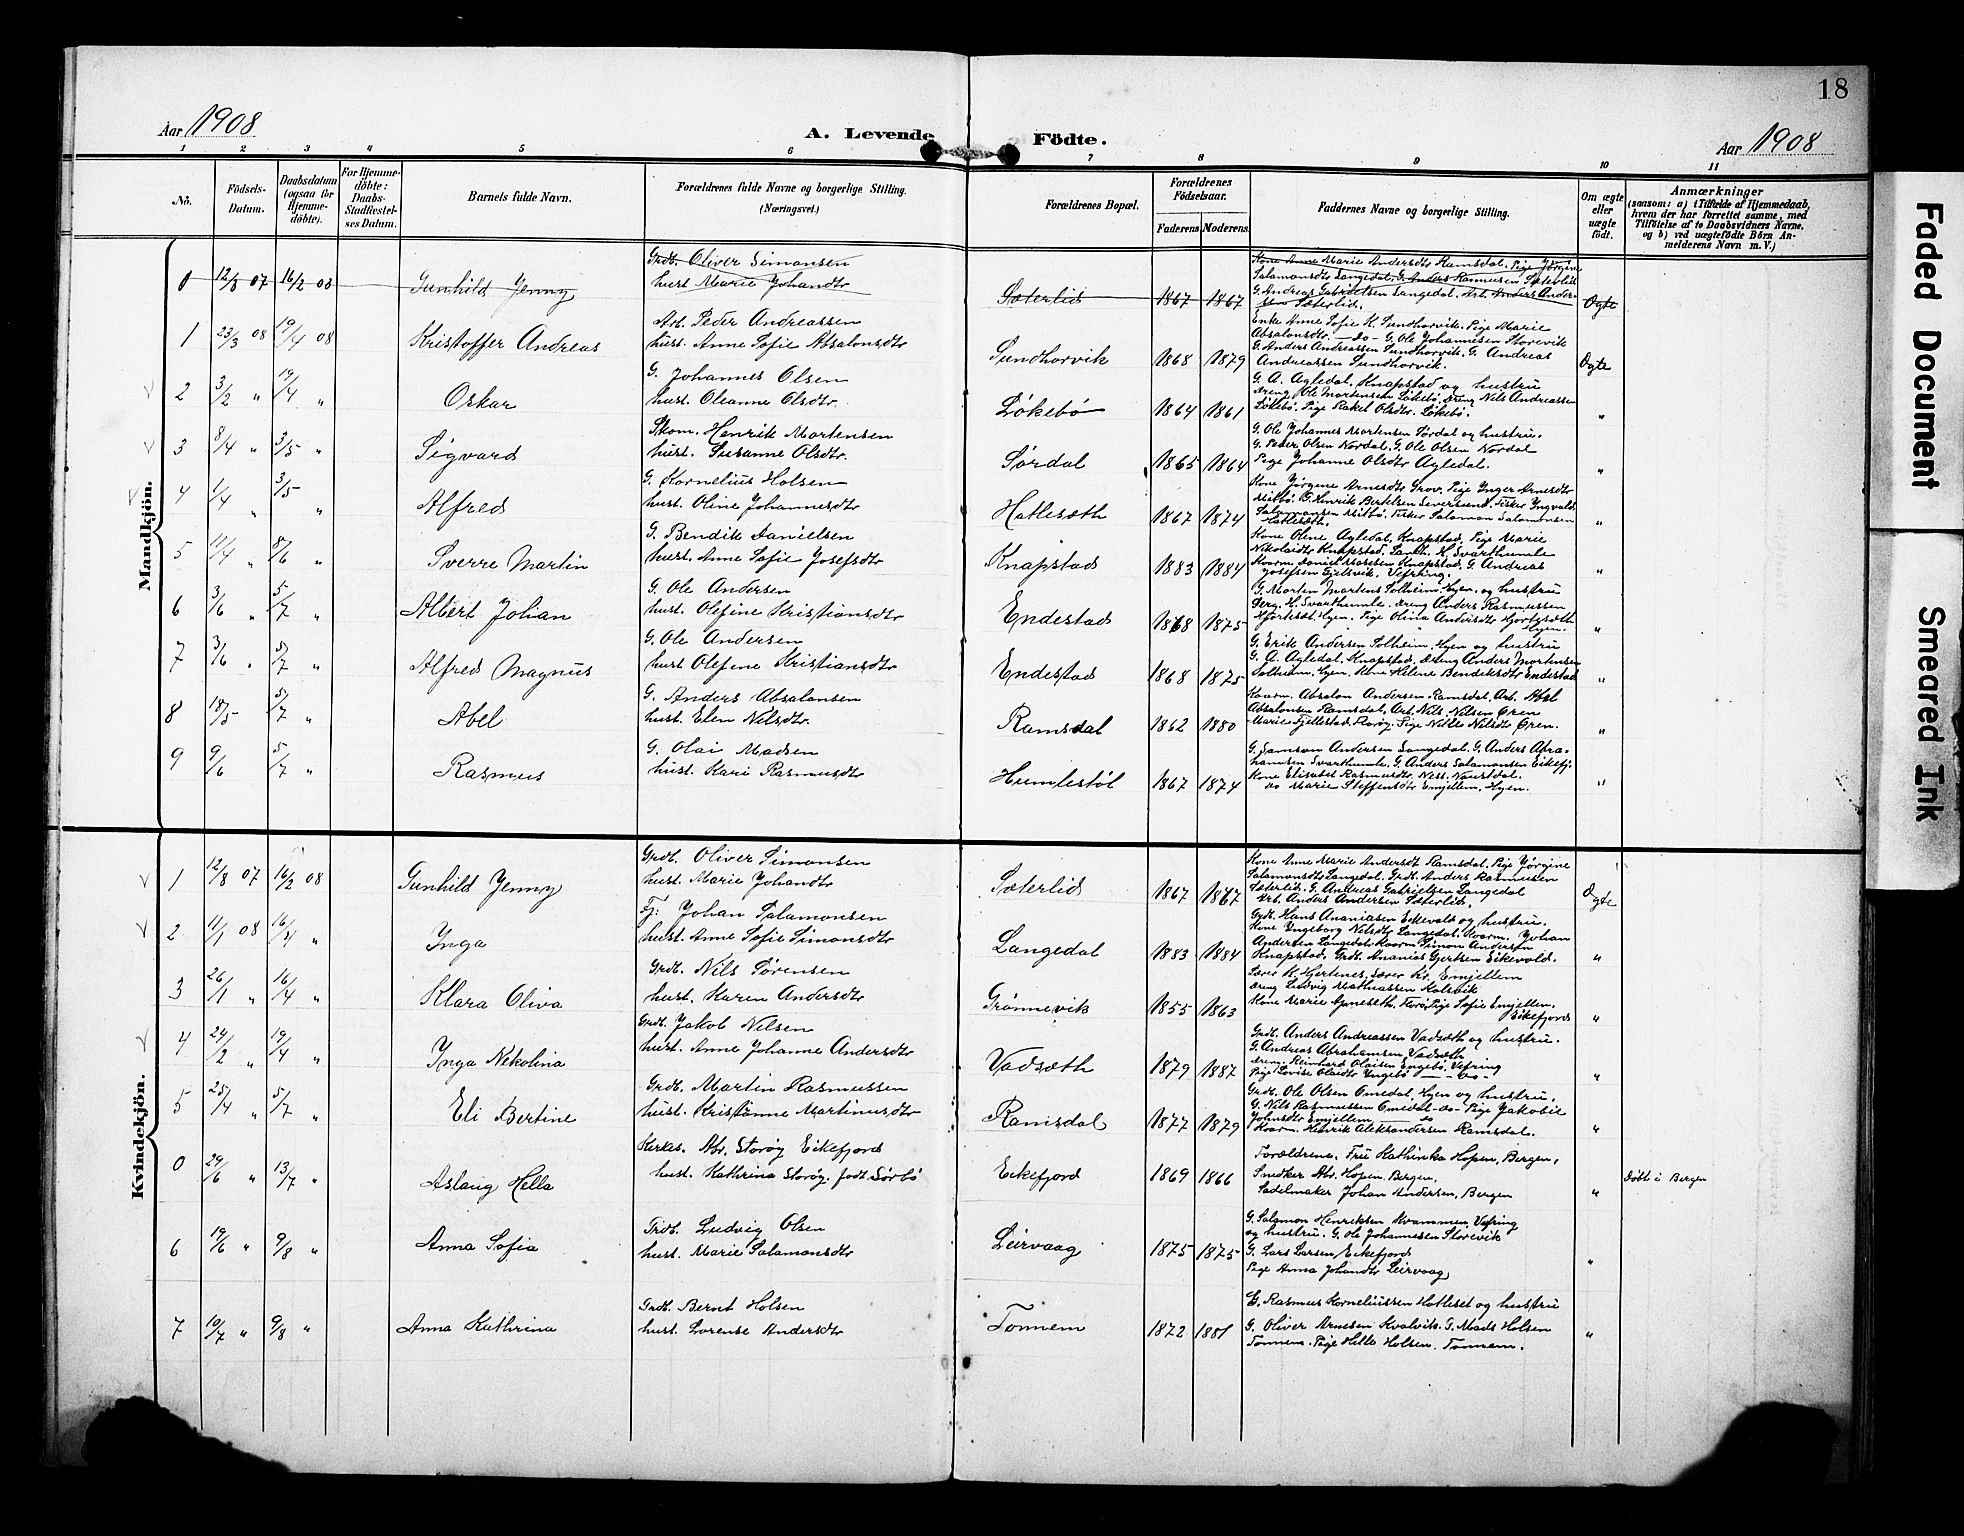 18
Aar 1908 A. Levende Födte. Aar 1908
1 2 3 4 5 6 7 8 9 10 11
No. Födsels-Datum. Daabsdatum (ogsaa for Hjemme-döbte). For Hjemme-döbte: Daabs-Stadfæstel-ses Datum. Barnets fulde Navn. Forældrenes fulde Navne og borgerlige Stilling. (Næringsvei.) Forældrenes Bopæl. Forældrenes Födselsaar. Faderens Moderens. Faddernes Navne og borgerlige Stilling. Om ægte eller uægte födt. Anmærkninger (saasom: a) i Tilfælde af Hjemmedaab, hvem der har forrettet samme, med Tilföielse af to Daabsvidners Navne, og b) ved uægtefödte Börn An-melderens Navn m. V.)
Mandkjön.
0 12/8 07 16/2 08 Gunhild Jenny Grdb. Oliver Simonsen
hust. Marie Johandtr Sæterlid 1867 1867 Kone Anne Marie Andersdtr Ramsdal. Pige Jörgine
Salamonsdtr Langedal. G. Anders Rasmussen Sæterlid
G. Andreas Gabrielsen Langedal. Arb. Anders Ander-
sen Sæterlid. Ægte
1 23/3 08 19/4 08 Kristoffer Andreas Arb. Peder Andreassen
hust. Anne Sofie Absalonsdtr Sundhorvik 1868 1879 Enke Anne Sofie K. Sundhorvik. Pige Marie
Absalonsdtr. -do- G. Ole Johannesen Storevik
G. Anders Andreassen Sundhorvik. G. Andreas
Andreassen Sundhorvik. Ægte
2 3/2 " 19/4 " Oskar G. Johannes Olsen
hust. Oleanne Olsdtr. Løkebø 1864 1861 G. A. Agledal, Knapstad og hustru
dreng Ole Mortensen Løkebø, dreng Nils Andreassen
Løkebø. Pige Rakel Olsdtr. Løkebø. "
3 8/4 " 3/5 " Sigvard Skom. Henrik Martensen
hust. Susanne Olsdtr. Sørdal 1865 1864 G. Ole Johannes Mortensen Sørdal og hustru.
G. Peder Olsen Nordal. G. Ole Olsen Nordal
Pige Johanne Olsdtr Agledal. "
4 1/4 " 3/5 " Alfred G. Kornelius Holsen
hust. Oline Johannesdtr. Hatlesæth 1867 1874 Kone Jörgine Arnesdtr Grov. Pige Inger Arnesdtr
Midtbø. G. Henrik Bertelsen Sversund. Fisker Ingvald
Salamonsen Midtbø. Fisker Salamon Salomonsen
Hatlesæth. "
5 11/4 " 8/6 " Sverre Martin G. Bendik Danielsen
hust. Anne Sofie Josefsdtr Knapstad 1883 1884 Kone Oline Agledal, Knapstad, Pige Marie
Nikolaidtr Knapstad. Landh. H. Svarthumle
Kaarm. Daniel Knapstad. G. Andreas
Josefsen Gjelsvik. Vefring. "
6 3/6 " 5/7 " Albert Johan G. Ole Andersen
hust. Olefine Kristiansdtr. Endestad 1868 1875 G. Morten Martens Solheim. Hyen. og hustru
H. Svarthumle. dreng Anders Rasmussen
Hjortesæt. Hyen. Pige Olina Andersdtr Hjortesæth
Hyen. "
7 3/6 " 5/7 " Alfred Magnus G. Ole Andersen
hust Olefine Kristiansdtr Endestad 1868 1875 G. Erik Andersen Solheim. Hyen og hustru
G. A. Agledal, Knapstad. dreng Anders Mortensen
Solheim, Hyen. Kone Helene Bendeksdtr Endestad "
8 18/5 5/7 " Abel G. Anders Absalonsen
hust. Elen Nilsdtr. Ramsdal 1862 1880 Kaarm. Absalon Andersen Ramsdal. Arb. Abel
Absalonsen Ramsdal. Arb. Nils Nilsen Gren
Marie Fjellestad, Florø. Pige Nilsdtr Gren. "
9 9/6 5/7 " Rasmus G. Olai Madsen
hust. Kari Rasmusdtr Humlestøl 1867 1874 G. Samson Andersen Langedal. G. Anders Abra-
hamsen Svarthumle. G. Anders Salamonsen Eikefj.
Kone Elisabet Rasmusdtr. Nes. Naustdal.
do Marie Steffensdtr Emjellem. Hyen. "
Kvindekjön.
1 12/8 07 16/2 08 Gunhild Jenny Grdb. Oliver Simonsen
hust. Marie Johandtr Sæterlid 1867 1867 Kone Anne Marie Andersdt Ramsdal. Pige Jörgine
Salamonsdtr Langedal. Grdb. Anders Rasmussen
Sæterlid. G. Andreas Gabrielsen Langedal
Arb. Anders Andersen Sæterlid. Ægte
2 11/1 08 16/4 " Inga Fj: Johan Salamonsen
hust. Anne Sofie Simonsdtr Langedal 1883 1884 Grdb. Hans Ananiasen Eikevold og hustru.
Kone Ingeborg Nilsdtr Langedal. Kaarm. Johan
Andersen Langedal. Kaarm Simon Andersen
Knapstad. Grdb. Ananias Gjertsen Eikevold. "
3 26/1 " 16/4 " Klara Oliva Grdb. Nils Sørensen
hust. Karen Andersdtr Grønnevik 1855 1863 Lærer K. Hjertenes. Lærer Kr. Emjellem
dreng Ludvig Mathiassen Kalsvik
Kone Marie Florø. Pige Sofie Emjellem.
Eikefjord "
4 24/2 " 19/4 " Inga Nikolina Grdb. Jakob Nilsen
hust. Anne Johanne Andersdtr Vadsæth 1879 1887 Grdb. Anders Andreassen Vadsæth og hustru.
G. Andreas Abrahamsen Vadsæth
dreng. Reinhard Olaisen Engebø. Vefring
Pige Lovise Olaidtr Engebø - do - "
5 25/4 " 5/7 " Eli Bertine Grdb. Martin Rasmussen
hust. Kristianne Martinusdtr Ramsdal 1877 1879 Grdb. Ole Olsen Omedal. Hyen og hustru.
G. Nils Rasmussen Omedal -do- Pige Jakobie
Johnsdtr Emjellem - do
Kaarm. Henrik Aleksandersen Ramsdal. "
0 29/6 " 13/7 " Aslaug Hella Kirkes. Abr. Storøy Eikefjord
hust. Kathrina Storøy. født Sørbø Eikefjord 1869 1866 Forældrene. Fru Kathinka Hopen, Bergen,
Snedker Abr. Hopen, Bergen,
Sadelmaker Johan Andersen, Bergen " Døbt i Bergen
6 19/6 " 9/8 " Anna Sofia Grdb. Ludvig Olsen
hust. Marie Salamonsdtr Leirvaag 1875 1875 G. Salamon Henriksen Kvammen, Vefring
og hustru. G. Ole Johannesen Storevik
G. Lars Larsen, Eikefjord
Pige Anna Johandtr Leirvaag "
7 10/7 " 9/8 " Anna Kathrina Grdb. Bernt Holsen
hust. Lorense Andersdtr Tonnem 1872 1881 G. Rasmus Korneliussen Hatleset og hustru
G. Oliver Arnesen Kvalvik. G. Mads Holsen
Tonnem. Pige Hille Holsen. Tonnem. "
Faded Document
Smeared Ink